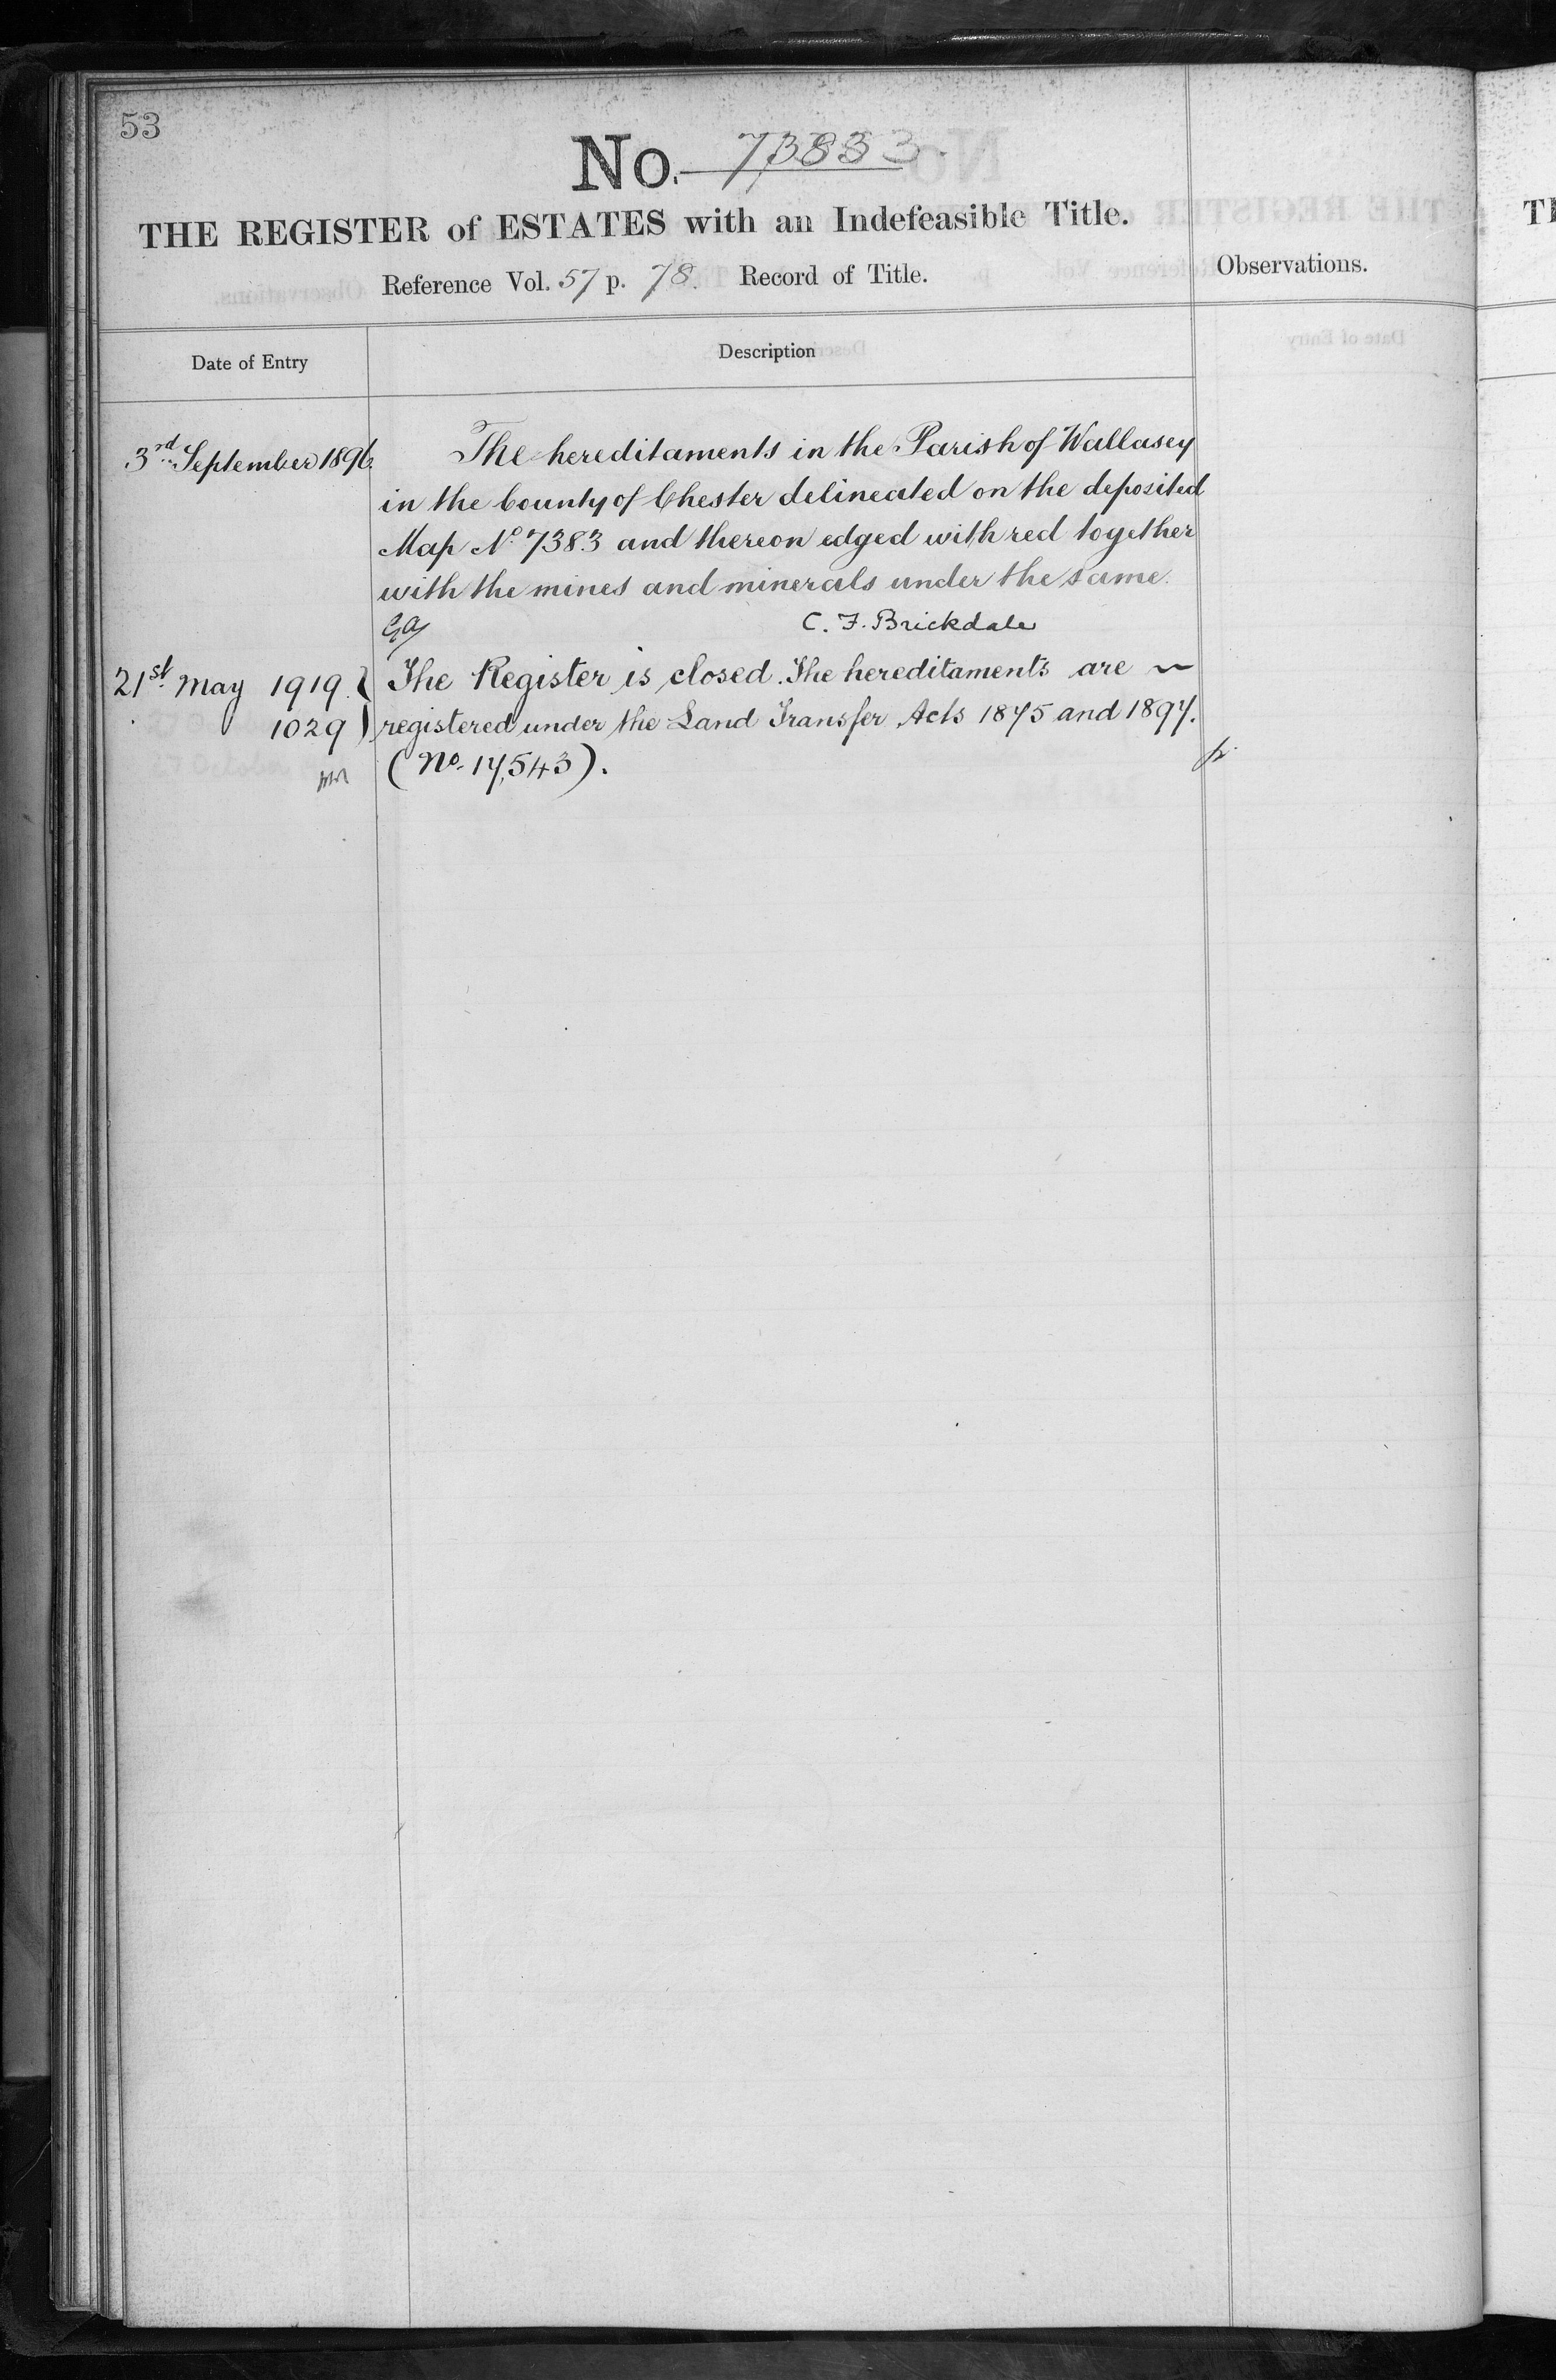 53
No. 7383
THE REGISTER of ESTATES with an Indefeasible Title.
Reference Vol. 57 p. 78. Record of Title.
Observations.
Date of Entry
Description
3rd September 1896.
The hereditaments in the Parish of Wallasey
in the County of Chester delineated on the deposited
Map No. 7383 and thereon edged with red together
with the mines and minerals under the same.
C. F. Brickdale
21st May 1919.
1029
The Register is closed. The hereditaments are ~
registered under the Land Transfer Acts 1875 and 1897.
(No. 17,543).